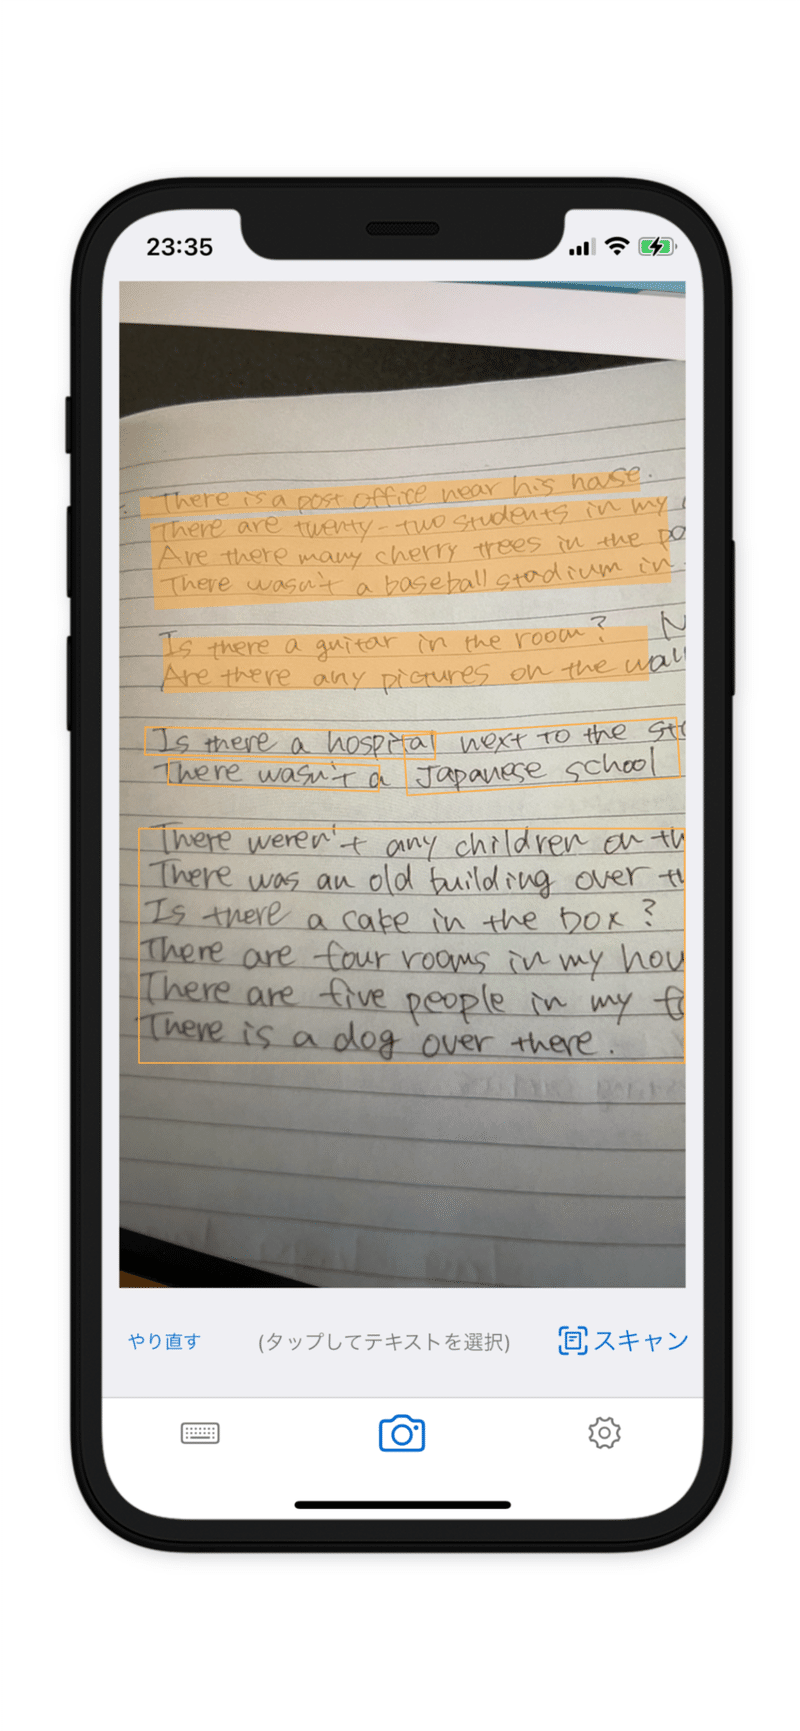 23:35
There is a post office near his house.
There are twenty-two students in my
Are there many cherry trees in the
There wasn't a baseball stadium in
Is there a guitar in the room?
Are there any pictures on the wall
Is there a hospital next to the
There wasn't a Japanese school
There weren't any children on
There was an old building over
Is there a cake in the box?
There are four rooms in my
There are five people in my
There is a dog over there.
やり直す (タップしてテキストを選択) スキャン